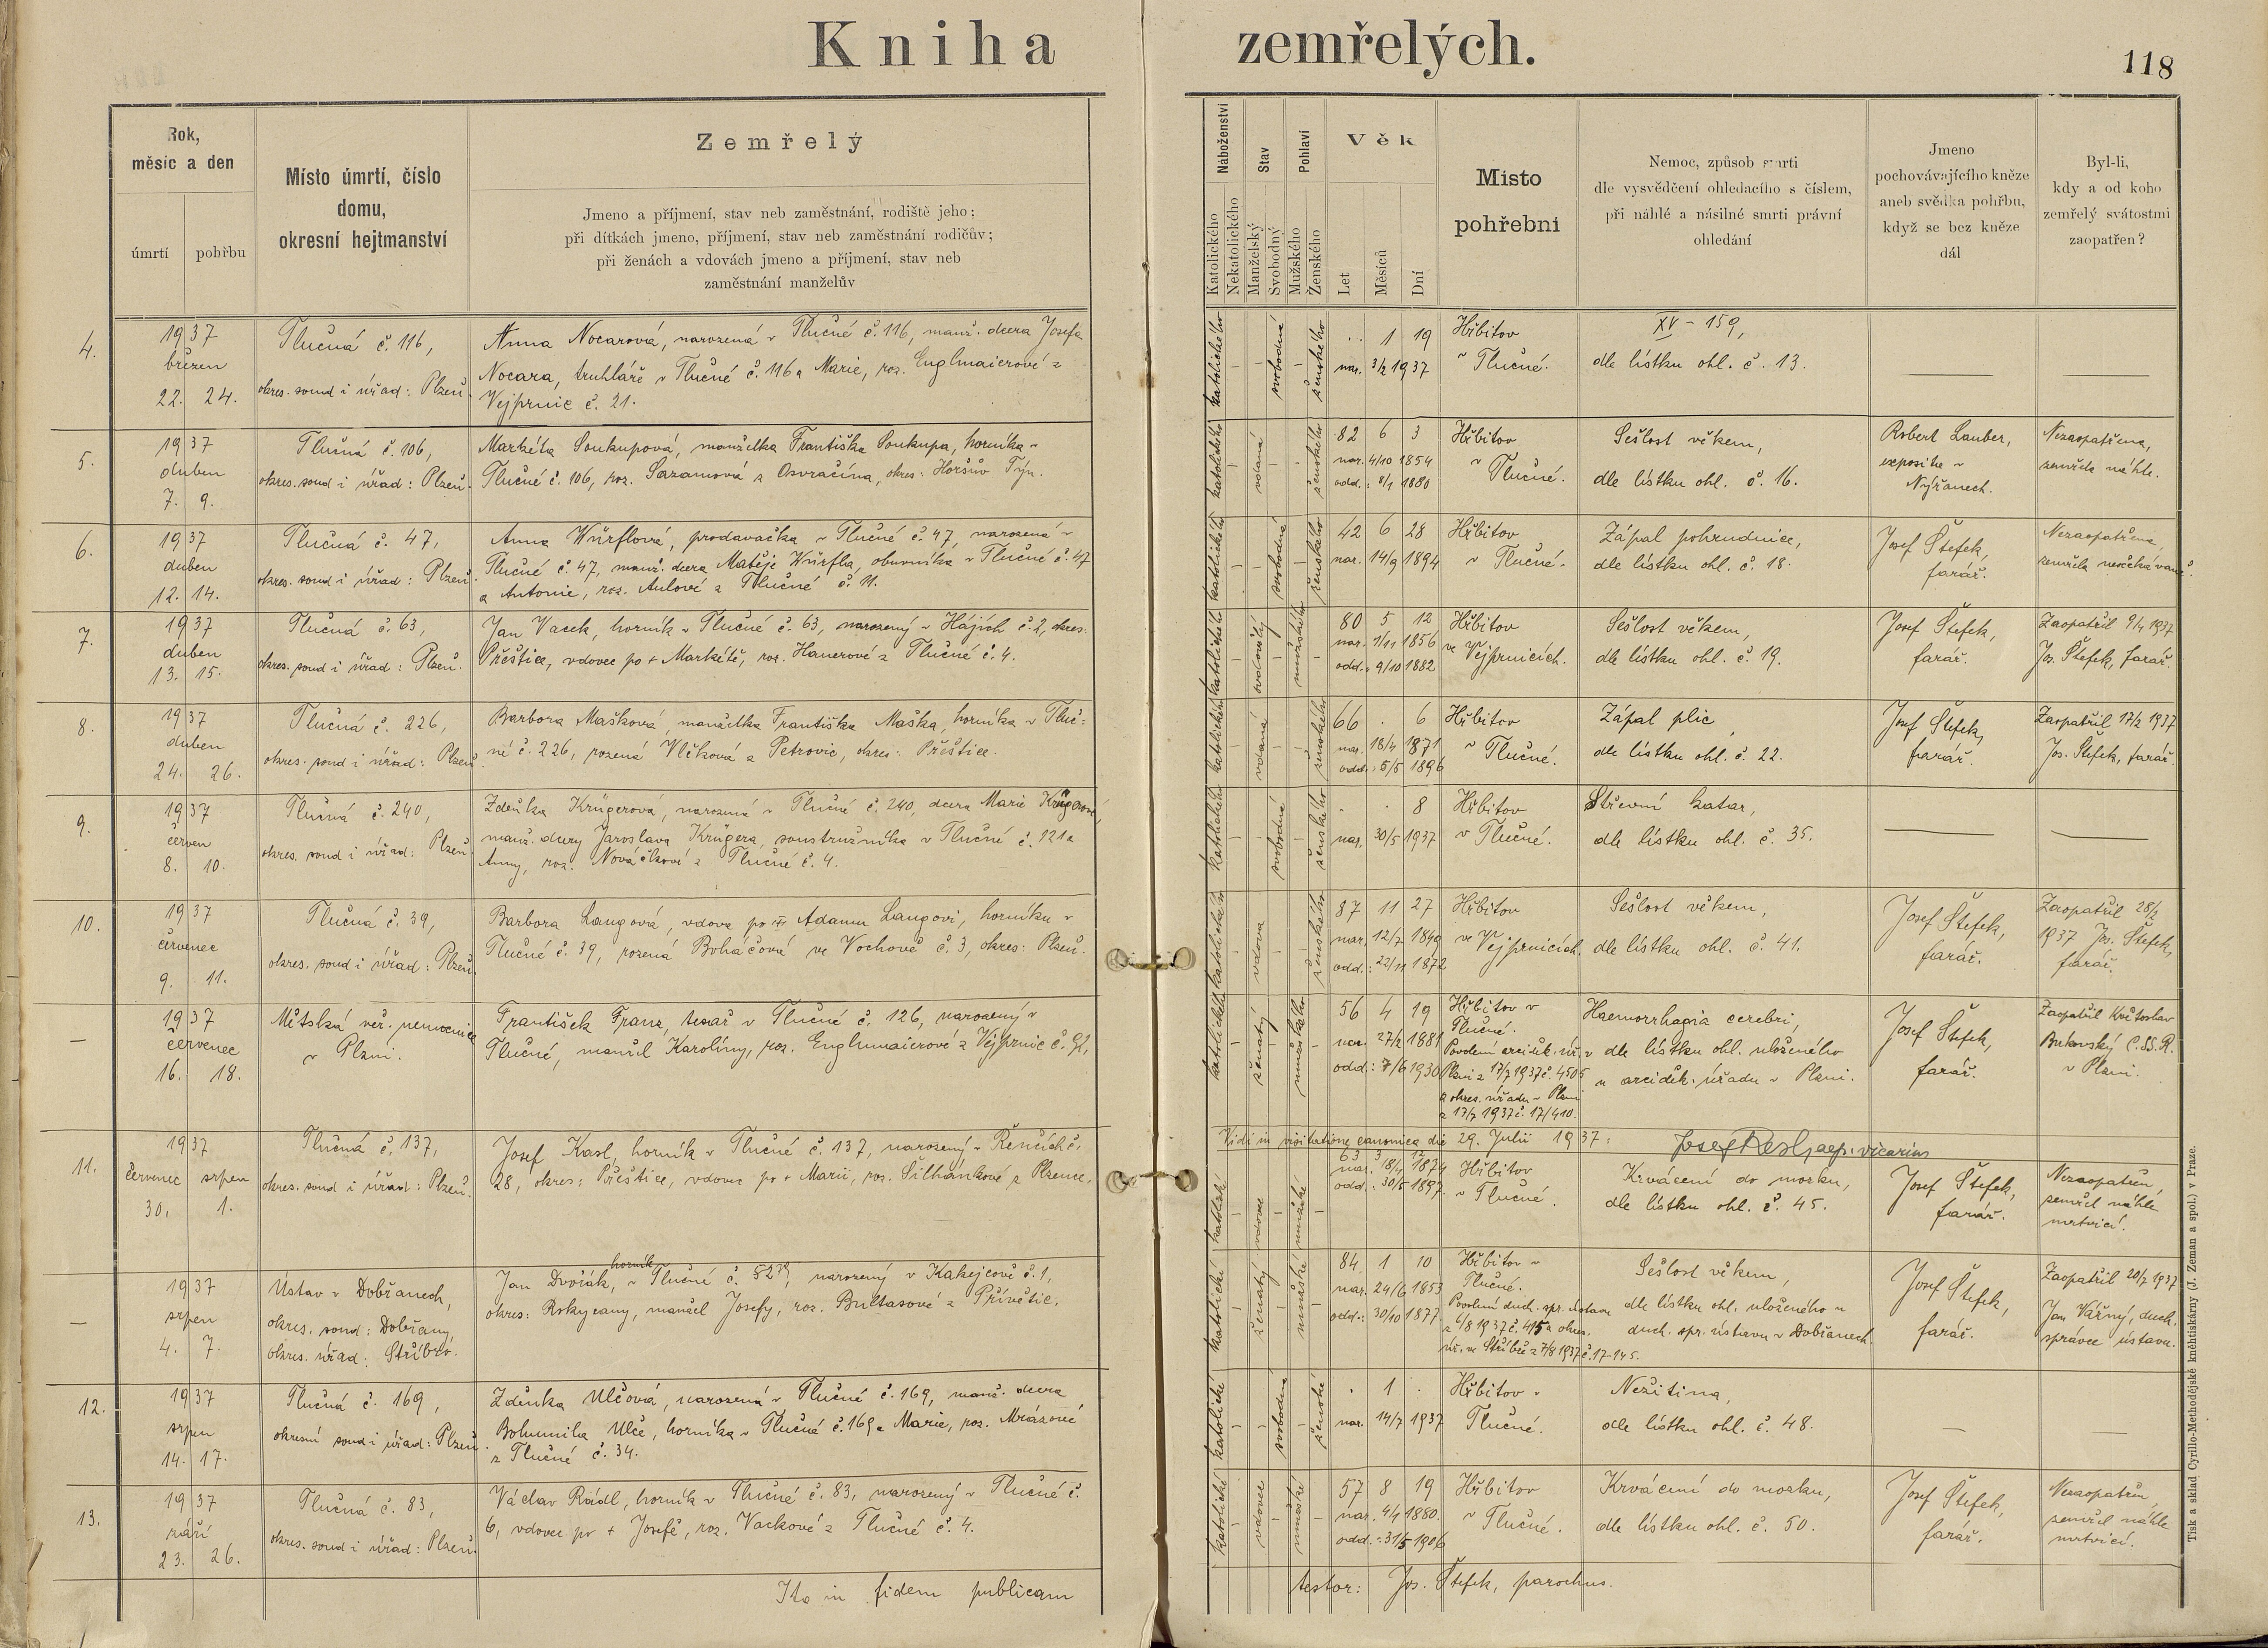 Kniha zemřelých.
118
Rok,
měsíc a den
úmrtí
pohřbu
Místo úmrtí, číslo
domu,
okresní hejtmanství
Zemřelý
Jmeno a příjmení, stav neb zaměstnání, rodiště jeho;
při dítkách jmeno, příjmení, stav neb zaměstnání rodičův;
při ženách a vdovách jmeno a příjmení, stav neb
zaměstnání manželův
Náboženství
Katolického
Nekatolického
Stav
Manželský
Svobodný
Pohlaví
Mužského
Ženského
Věk
Let
Měsíců
Dní
Místo
pohřební
Nemoc, způsob smrti
dle vysvědčení ohledacího s číslem,
při náhlé a násilné smrti právní
ohledání
Jmeno
pochovávajícího kněze
aneb svědka pohřbu,
když se bez kněze
dál
Byl-li,
kdy a od koho
zemřelý svátostmi
zaopatřen?
4.
1937
březen
22. 24.
Tlučná č. 116,
okres. soud i úřad: Plzeň.
Anna Nocarová, narozená v Tlučné č. 116, manž. dcera Josefa
Nocara, truhláře v Tlučné č. 116 a Marie, roz. Englmaierové z
Vejprnic č. 21.
katolického
svobodná
ženského
. . 1 19
nar. 3/2 1937
Hřbitov
v Tlučné.
XV - 159,
dle lístku ohl. č. 13.
5.
1937
duben
7. 9.
Tlučná č. 106,
okres. soud i úřad: Plzeň.
Markéta Soukupová, manželka Františka Soukupa, horníka v
Tlučné č. 106, roz. Sazamová z Osvračína, okres: Horšův Týn.
katolického
vdaná
ženského
82 6 3
nar. 4/10 1854
odd.: 8/1 1880
Hřbitov
v Tlučné.
Sešlost věkem,
dle lístku ohl. č. 16.
Robert Lauber,
exposita v
Nýřanech.
Nezaopatřena,
zemřela náhle.
6.
1937
duben
12. 14.
Tlučná č. 47,
okres. soud i úřad: Plzeň.
Anna Würflová, prodavačka v Tlučné č. 47, narozená v
Tlučné č. 47, manž. dcera Matěje Würfla, obuvníka v Tlučné č. 47
a Antonie, roz. Aulové z Tlučné č. 11.
katolického
svobodná
ženského
42 6 28
nar. 14/9 1894
Hřbitov
v Tlučné.
Zápal pohrudnice,
dle lístku ohl. č. 18.
Josef Štefek,
farář.
Nezaopatřena,
zemřela neočekávaně.
7.
1937
duben
13. 15.
Tlučná č. 63,
okres. soud i úřad: Plzeň.
Jan Vacek, horník v Tlučné č. 63, narozený v Hájích č. 2, okres:
Přeštice, vdovec po + Markétě, roz. Hanerové z Tlučné č. 4.
katolického
mužského
80 5 12
nar. 1/11 1856
odd.: 9/10 1882
Hřbitov
ve Vejprnicích.
Sešlost věkem,
dle lístku ohl. č. 19.
Josef Štefek,
farář.
Zaopatřil 9/4 1937
Jos. Štefek, farář.
8.
1937
duben
24. 26.
Tlučná č. 226,
okres. soud i úřad: Plzeň.
Barbora Mašková, manželka Františka Maška, horníka v Tluč=
né č. 226, rozená Vlčková z Petrovic, okres: Přeštice.
katolického
vdaná
ženského
66 . 6
nar. 18/4 1871
odd.: 5/5 1896
Hřbitov
v Tlučné.
Zápal plic,
dle lístku ohl. č. 22.
Josef Štefek,
farář.
Zaopatřil 17/2 1937
Jos. Štefek, farář.
9.
1937
červen
8. 10.
Tlučná č. 240,
okres. soud i úřad: Plzeň.
Zdeňka Krügerová, narozená v Tlučné č. 240, dcera Marie Krügerové,
manž. dcery Jaroslava Krügera, soustružníka v Tlučné č. 121 a
Anny, roz. Nováčkové z Tlučné č. 4.
katolického
svobodná
ženského
. . 8
nar. 30/5 1937
Hřbitov
v Tlučné.
Střevní katar,
dle lístku ohl. č. 35.
10.
1937
červenec
9. 11.
Tlučná č. 39,
okres. soud i úřad: Plzeň.
Barbora Langová, vdova po Adamu Langovi, horníku v
Tlučné č. 39, rozená Boháčová ve Vochově č. 3, okres: Plzeň.
katolického
vdova
ženského
87 11 27
nar. 12/7 1849
odd.: 22/11 1872
Hřbitov
ve Vejprnicích.
Sešlost věkem,
dle lístku ohl. č. 41.
Josef Štefek,
farář.
Zaopatřil 28/2
1937 Jos. Štefek,
farář.
—
1937
červenec
16. 18.
Městská veř. nemocnice
v Plzni.
František Franz, tesař v Tlučné č. 126, narozený v
Tlučné, manžel Karolíny, roz. Englmaierové z Vejprnic č. 91,
katolického
ženatý
mužského
56 4 19
nar. 27/2 1881
odd.: 7/6 1930
Hřbitov v
Tlučné.
Povolení arciděk. úř. v
Plzni z 17/7 1937 č. 4505
a okres. úřadu v Plzni
z 17/7 1937 č. 17/410.
Haemorrhagia cerebri,
dle lístku ohl. uloženého
u arciděk. úřadu v Plzni.
Josef Štefek,
farář.
Zaopatřil Květoslav
Bukovský C.SS.R.
v Plzni.
Vidi in visitatione canonica die 29. Julii 1937:
vicarius
11.
1937
červenec srpen
30. 1.
Tlučná č. 137,
okres. soud i úřad: Plzeň.
Josef Kasl, horník v Tlučné č. 137, narozený v Řenčích č.
28, okres: Přeštice, vdovec po + Marii, roz. Šilhánkové z Plzence.
katolické
vdovec
mužské
63 3 12
nar. 18/4 1874
odd.: 30/5 1897.
Hřbitov
v Tlučné.
Krvácení do mozku,
dle lístku ohl. č. 45.
Josef Štefek,
farář.
Nezaopatřen,
zemřel náhle
mrtvicí.
—
1937
srpen
4. 7.
Ústav v Dobřanech,
okres. soud: Dobřany,
okres. úřad: Stříbro.
horník
Jan Dvořák, v Tlučné č. narozený v Kakejcově č. 1,
okres: Rokycany, manžel Josefy, roz. Bultasové z Přívětic.
katolické
ženatý
mužské
84 1 10
nar. 24/6 1853
odd.: 30/10 1877.
Hřbitov v
Tlučné.
Povolení duch. spr. ústavu
z 6/8 1937 č. 415 a okres.
úř. ve Stříbře z 7/8 1937 č. 17-145.
Sešlost věkem,
dle lístku ohl. uloženého u
duch. spr. ústavu v Dobřanech.
Josef Štefek,
farář.
Zaopatřil 20/7 1937
Jan Vářný, duch.
správce ústavu.
12.
1937
srpen
14. 17.
Tlučná č. 169,
okresní soud i úřad: Plzeň.
Zdeňka Ulčová, narozená v Tlučné č. 169, manž. dcera
Bohumila Ulče, horníka v Tlučné č. 169 a Marie, roz. Mrázové
z Tlučné č. 34.
katolické
svobodná
ženské
. 1 .
nar. 14/7 1937
Hřbitov v
Tlučné.
Nežitina,
dle lístku ohl. č. 48.
13.
1937
září
23. 26.
Tlučná č. 83,
okres. soud i úřad: Plzeň.
Václav Rádl, horník v Tlučné č. 83, narozený v Tlučné č.
6, vdovec po + Josefě, roz. Vackové z Tlučné č. 4.
katolické
vdovec
mužské
57 8 19
nar. 4/1 1880.
odd.: 31/5 1906
Hřbitov
v Tlučné.
Krvácení do mozku,
dle lístku ohl. č. 50.
Josef Štefek,
farář.
Nezaopatřen,
zemřel náhle
mrtvicí.
Ita in fidem publicam
testor: Jos. Štefek, parochus.
Tisk a sklad Cyrillo-Methodějské knihtiskárny (J. Zeman a spol.) v Praze.